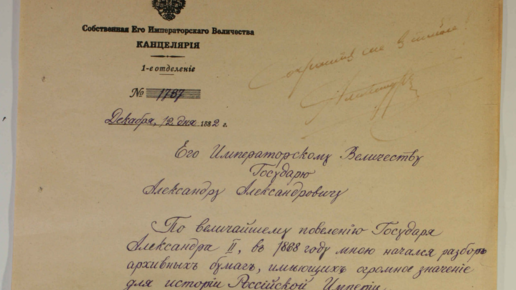 Собственная Его Императорскаго Величества
КАНЦЕЛЯРІЯ
1-е отделеніе
№ 1787
Декабря, 12 дня 1882 г.
сохранить в
Его Императорскому Величеству
Государю
Александру Александровичу
По величайшему повелению Государя
Александра II, в 1868 году мною начался разборъ
архивныхъ бумагъ, имеющихъ огромное значение
для истории Российской Империи.